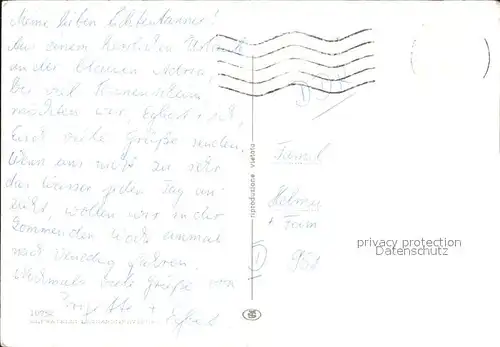 Meine lieben Lichtentanner!
Aus einem herrlichen Urlaub
an der blauen Adria,
bei viel Sonnenschein,
möchten wir, Egbert + ich,
Euch viele Grüße senden.
Wenn uns nicht zu sehr
das Wasser jeden Tag an-
zieht, wollen wir in der
kommenden Woche einmal
nach Venedig fahren.
Nochmals viele Grüße von
Brigitte +
Egbert
DDR
Famil
Helmu
+ Frim
952
riproduzione vietata
privacy protection
Datenschutz